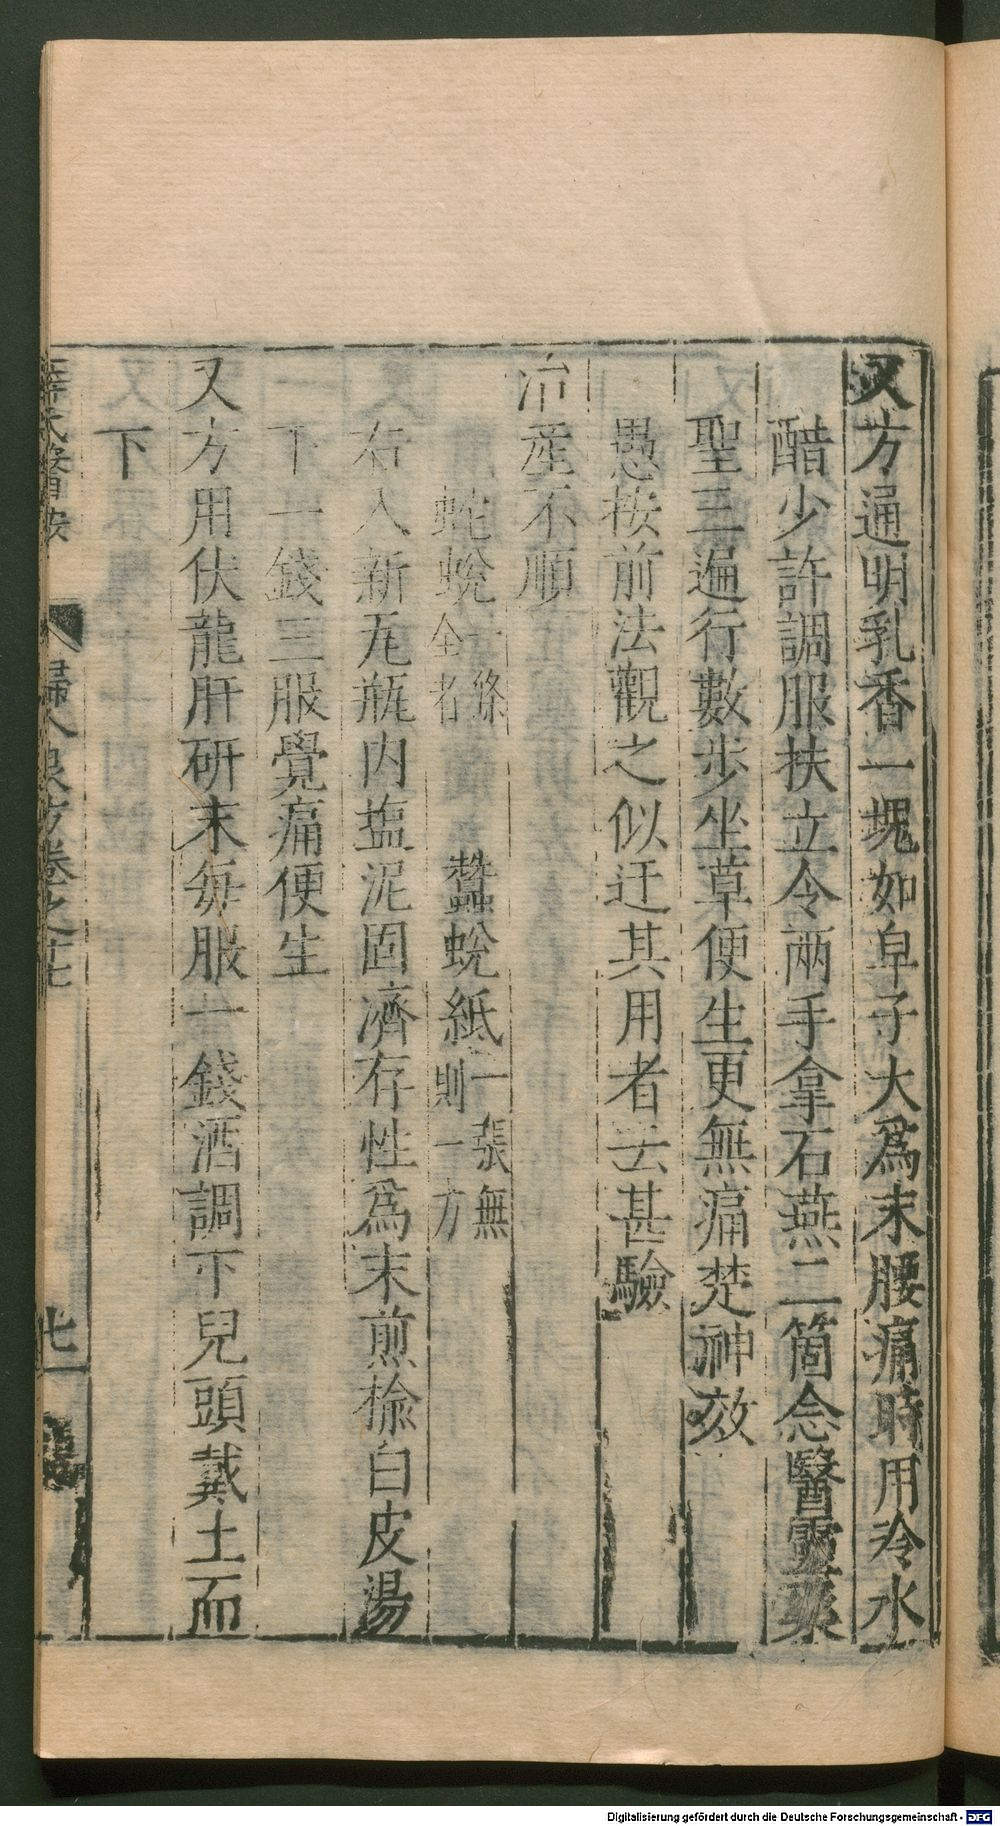 又方通明乳香一塊如皁子大爲末腰痛時用冷水
醋少許調服扶立令兩手拿石燕二箇念醫靈藥
聖三遍行數步坐草便生更無痛楚神效
愚按前法觀之似迂其用者云甚驗
治產不順
蛇蛻一條全者 蠶蛻紙一張無則一方
右入新瓦瓶内塩泥固濟存性爲末煎榆白皮湯
下一錢三服覺痛便生
又方用伏龍肝研末每服一錢酒調下兒頭戴土而
下
薛氏醫按 婦人良方卷之十七 廿一
Digitalisierung gefördert durch die Deutsche Forschungsgemeinschaft - DFG